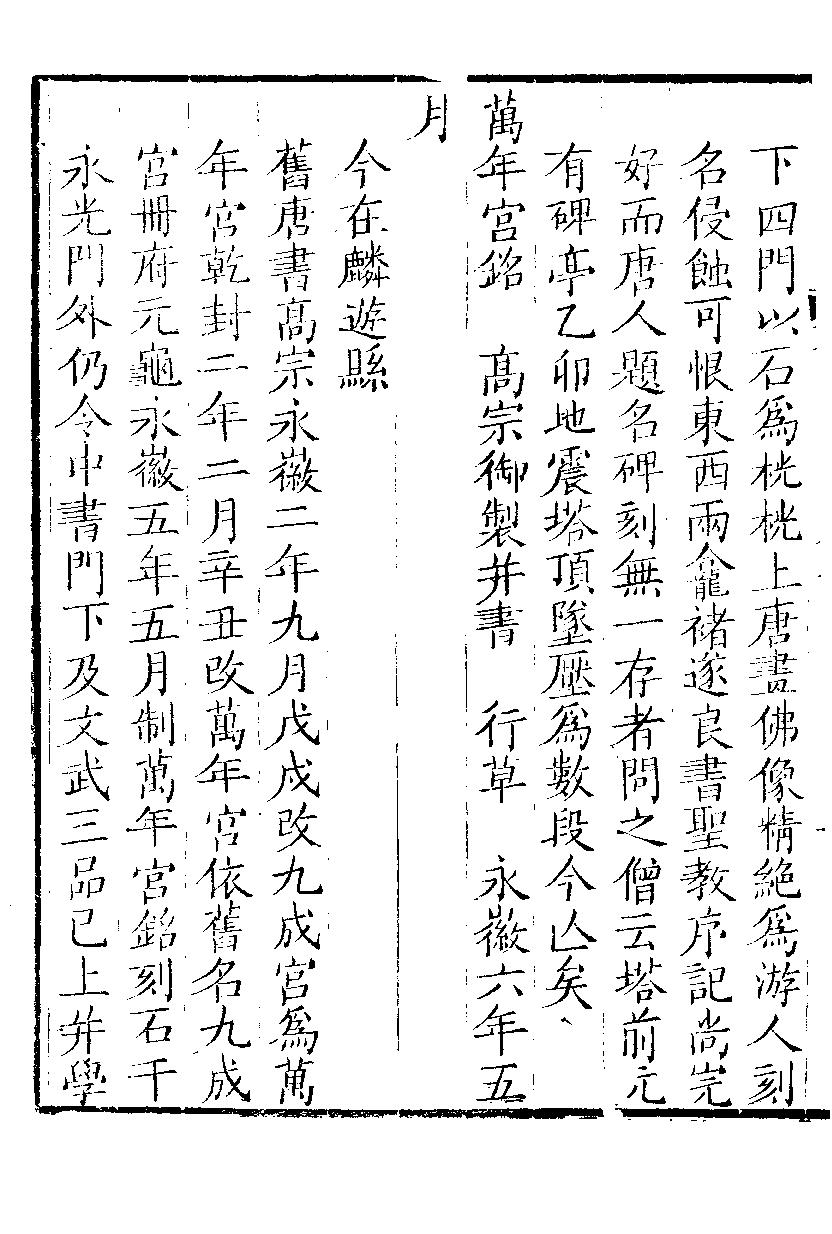 下四門以石爲桄桄上唐畫佛像精絶爲游人刻
名侵蝕可恨東西兩龕褚遂良書聖教序記尚完
好而唐人題名碑刻無一存者問之僧云塔前元
有碑亭乙卯地震塔頂墜壓爲數段今亾矣、
萬年宫銘　髙宗御製并書　行草　永徽六年五
月
今在麟遊縣
舊唐書髙宗永徽二年九月戊戌改九成宫爲萬
年宫乾封二年二月辛丑改萬年宫依舊名九成
宫冊府元龜永徽五年五月制萬年宫銘刻石于
永光門外仍令中書門下及文武三品已上并學